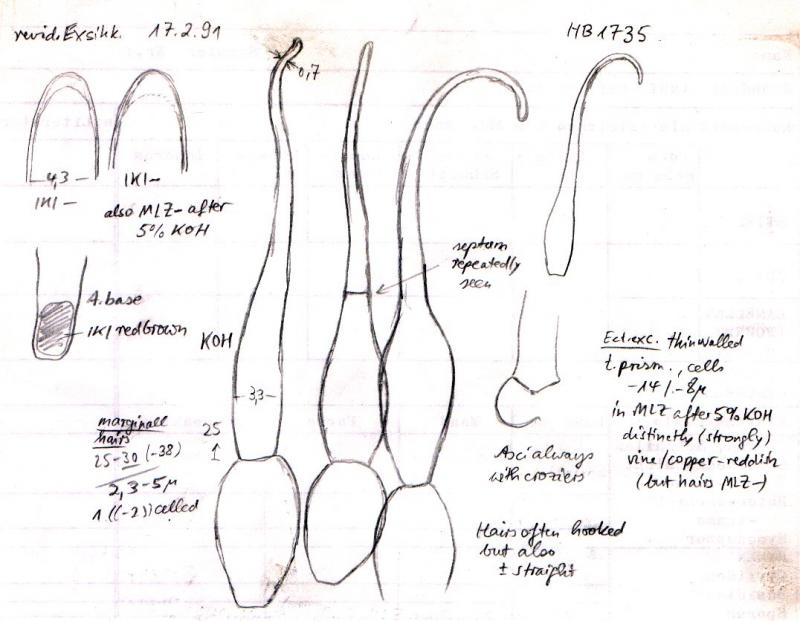 revid. Exsikk. 17.2.91
HB 1735
0,7
4,3
IKI –
IKI –
also MLZ– after
5% KOH
septum
repeatedly
seen
A. base
IKI redbrown
KOH
3,3
marginall
hairs
25–30 (–38)
2,3–5µ
1 ((–2)) celled
25
↑
Ect. exc. thinwalled
t. prism., cells
–14/–8µ
in MLZ after 5% KOH
distinctly (strongly)
vine/copper-reddish
(but hairs MLZ–)
Asci always
with croziers
Hairs often hooked
but also
± straight